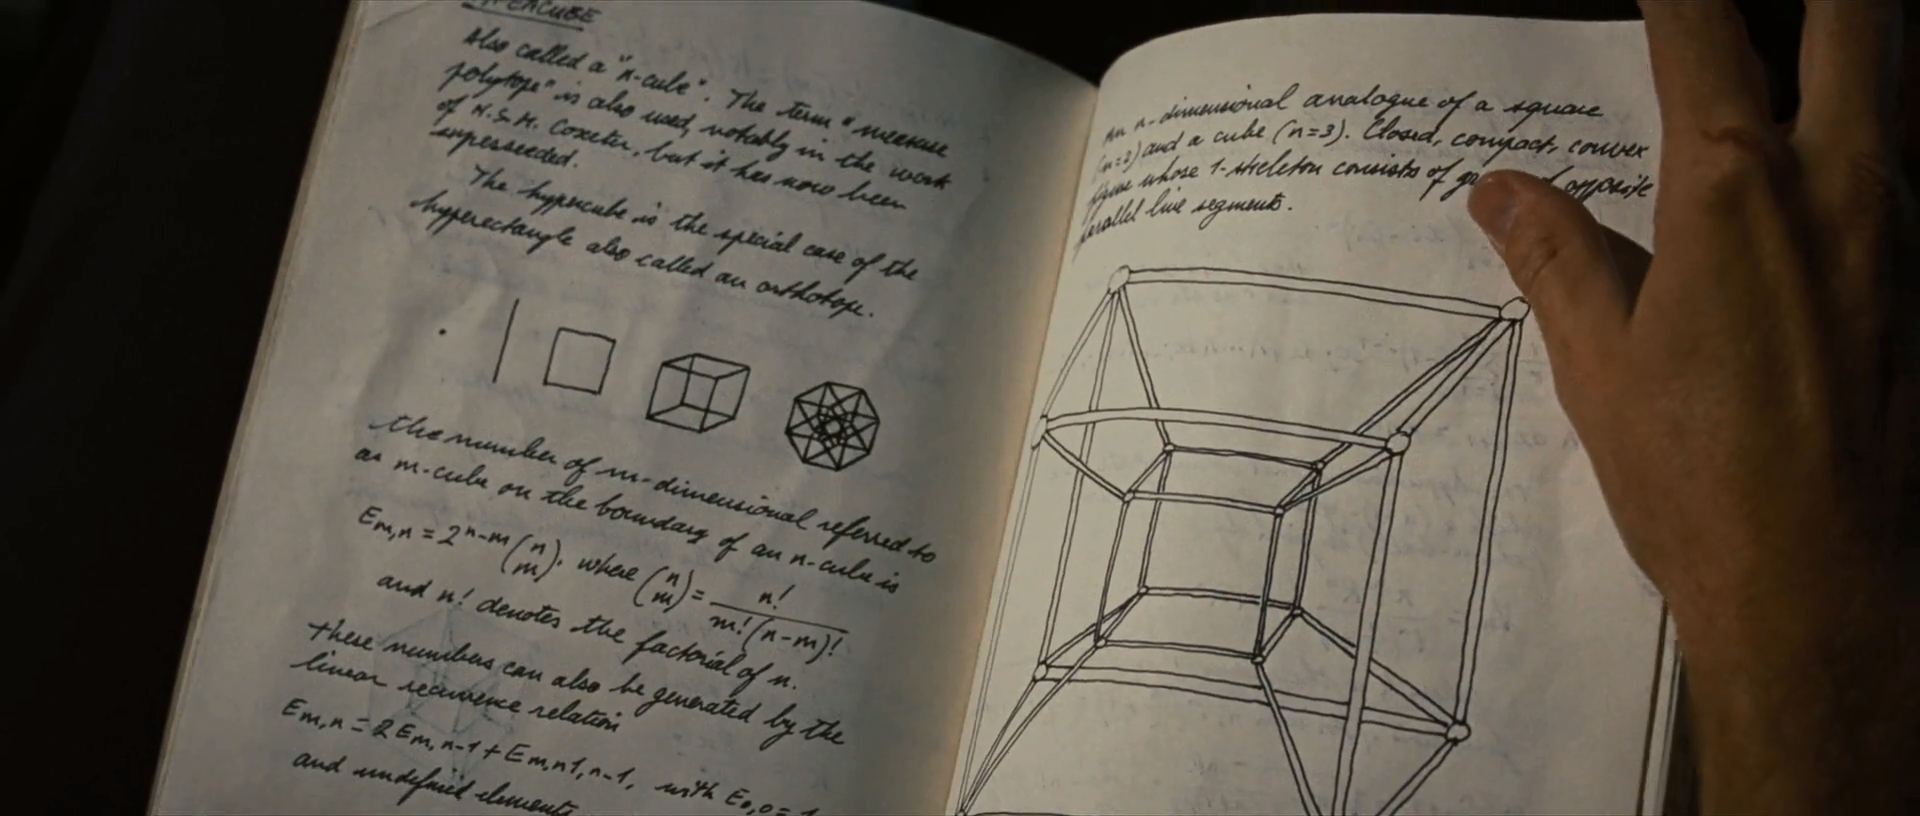 Also called a "n-cube". The term "measure
polytope" is also used, notably in the work
of H.S.M. Coxeter, but it has now been
superseeded.
The hypercube is the special case of the
hyperectangle also called an orthotope.
the number of m-dimensional referred to
as m-cube on the boundary of an n-cube is
Em,n = 2^n-m (n m). where (n m) = n! / m!(n-m)!
and n! denotes the factorial of n.
these numbers can also be generated by the
linear recurrence relation
Em,n = 2Em,n-1 + Em,n1,n-1, with E0,0 = 1
and undefined elements
An n-dimensional analogue of a square
(n=2) and a cube (n=3). Closed, compact, convex
figure whose 1-skeleton consists of opposite
parallel line segments.